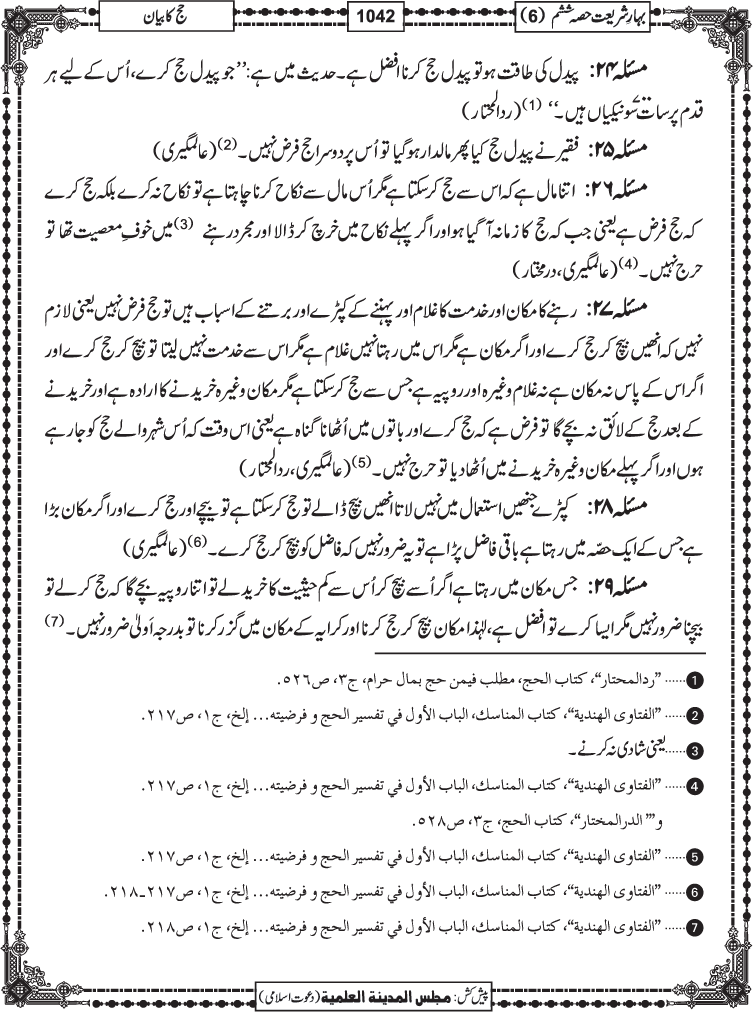 بہارِ شریعت حصہ ششم (6)
1042
حج کا بیان
مسئلہ ۲۴: پیدل کی طاقت ہو تو پیدل حج کرنا افضل ہے۔ حدیث میں ہے: ’’جو پیدل حج کرے، اُس کے لیے ہر
قدم پر سات سو نیکیاں ہیں۔‘‘ (1) (ردالمحتار)
مسئلہ ۲۵: فقیر نے پیدل حج کیا پھر مالدار ہوگیا تو اُس پر دوسرا حج فرض نہیں۔ (2) (عالمگیری)
مسئلہ ۲۶: اتنا مال ہے کہ اس سے حج کرسکتا ہے مگر اُس مال سے نکاح کرنا چاہتا ہے تو نکاح نہ کرے بلکہ حج کرے
کہ حج فرض ہے یعنی جب کہ حج کا زمانہ آگیا ہو اور اگر پہلے نکاح میں خرچ کر ڈالا اور مجرد رہنے (3) میں خوفِ معصیت تھا تو
حرج نہیں۔ (4) (عالمگیری، درمختار)
مسئلہ ۲۷: رہنے کا مکان اور خدمت کا غلام اور پہننے کے کپڑے اور برتنے کے اسباب ہیں تو حج فرض نہیں یعنی لازم
نہیں کہ انھیں بیچ کر حج کرے اور اگر مکان ہے مگر اس میں رہتا نہیں غلام ہے مگر اس سے خدمت نہیں لیتا تو بیچ کر حج کرے اور
اگر اس کے پاس نہ مکان ہے نہ غلام وغیرہ اور روپیہ ہے جس سے حج کرسکتا ہے مگر مکان وغیرہ خریدنے کا ارادہ ہے اور خریدنے
کے بعد حج کے لائق نہ بچے گا تو فرض ہے کہ حج کرے اور باتوں میں اُٹھانا گناہ ہے یعنی اس وقت کہ اُس شہر والے حج کو جارہے
ہوں اور اگر پہلے مکان وغیرہ خریدنے میں اُٹھا دیا تو حرج نہیں۔ (5) (عالمگیری، ردالمحتار)
مسئلہ ۲۸: کپڑے جنھیں استعمال میں نہیں لاتا انھیں بیچ ڈالے تو حج کرسکتا ہے تو بیچے اور حج کرے اور اگر مکان بڑا
ہے جس کے ایک حصّہ میں رہتا ہے باقی فاضل پڑا ہے تو یہ ضرور نہیں کہ فاضل کو بیچ کر حج کرے۔ (6) (عالمگیری)
مسئلہ ۲۹: جس مکان میں رہتا ہے اگر اُسے بیچ کر اُس سے کم حیثیت کا خرید لے تو اتنا روپیہ بچے گا کہ حج کرلے تو
بیچنا ضرور نہیں مگر ایسا کرے تو افضل ہے، لہٰذا مکان بیچ کر حج کرنا اور کرایہ کے مکان میں گزر کرنا تو بدرجہ اَولیٰ ضرور نہیں۔ (7)
1 ...... ”ردالمحتار“، کتاب الحج، مطلب فیمن حج بمال حرام، ج۳، ص۵۲۶.
2 ...... ”الفتاوی الهندیة“، کتاب المناسك، الباب الأول في تفسیر الحج و فرضیته... إلخ، ج۱، ص۲۱۷.
3 ...... یعنی شادی نہ کرنے۔
4 ...... ”الفتاوی الهندیة“، کتاب المناسك، الباب الأول في تفسیر الحج و فرضیته... إلخ، ج۱، ص۲۱۷.
و”الدرالمختار“، کتاب الحج، ج۳، ص۵۲۸.
5 ...... ”الفتاوی الهندیة“، کتاب المناسك، الباب الأول في تفسیر الحج و فرضیته... إلخ، ج۱، ص۲۱۷.
6 ...... ”الفتاوی الهندیة“، کتاب المناسك، الباب الأول في تفسیر الحج و فرضیته... إلخ، ج۱، ص۲۱۷-۲۱۸.
7 ...... ”الفتاوی الهندیة“، کتاب المناسك، الباب الأول في تفسیر الحج و فرضیته... إلخ، ج۱، ص۲۱۸.
پیش کش: مجلس المدینة العلمیة (دعوت اسلامی)